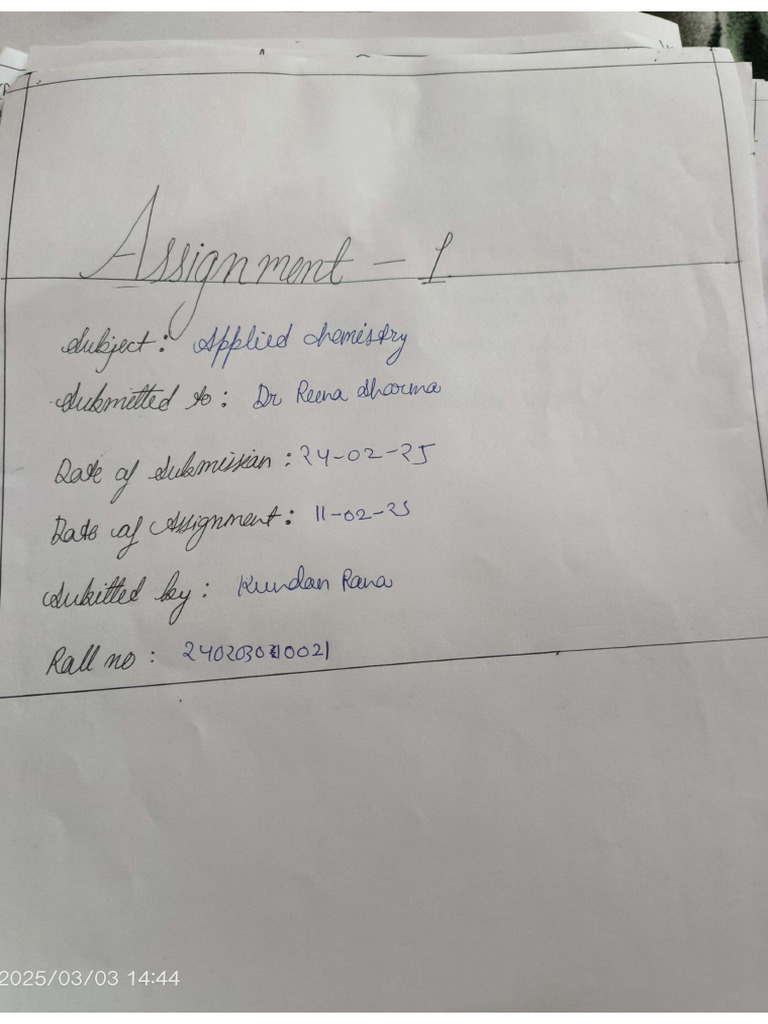 Assignment - 1
Subject: Applied chemistry
Submitted to: Dr Reena Sharma
Date of Submission: 24-02-25
Date of Assignment: 11-02-25
Subitted by: Kundan Rana
Roll no:
2025/03/03 14:44